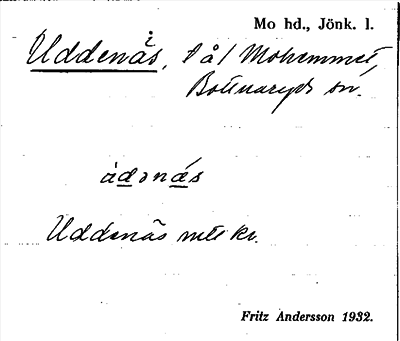 Mo hd., Jönk. l.
Uddenäs, på Mohemmet,
Bottnaryds sn.
ùdənás
Uddenäs mtl kr.
Fritz Andersson 1932.